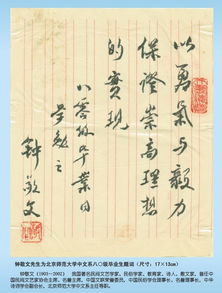 以勇气与毅力
保证崇高理想
的实现
八零级毕业同
学勉之
钟敬文
钟敬文先生为北京师范大学中文系八〇级毕业生题词（尺寸：17×13cm）
钟敬文（1903—2002） 我国著名民间文艺学家、民俗学家、教育家、诗人、散文家，曾任中
国民间文艺家协会主席、名誉主席，中国文联荣誉委员，中国民俗学会理事长、名誉理事长，中华
诗词学会副会长，北京师范大学中文系主任等职。